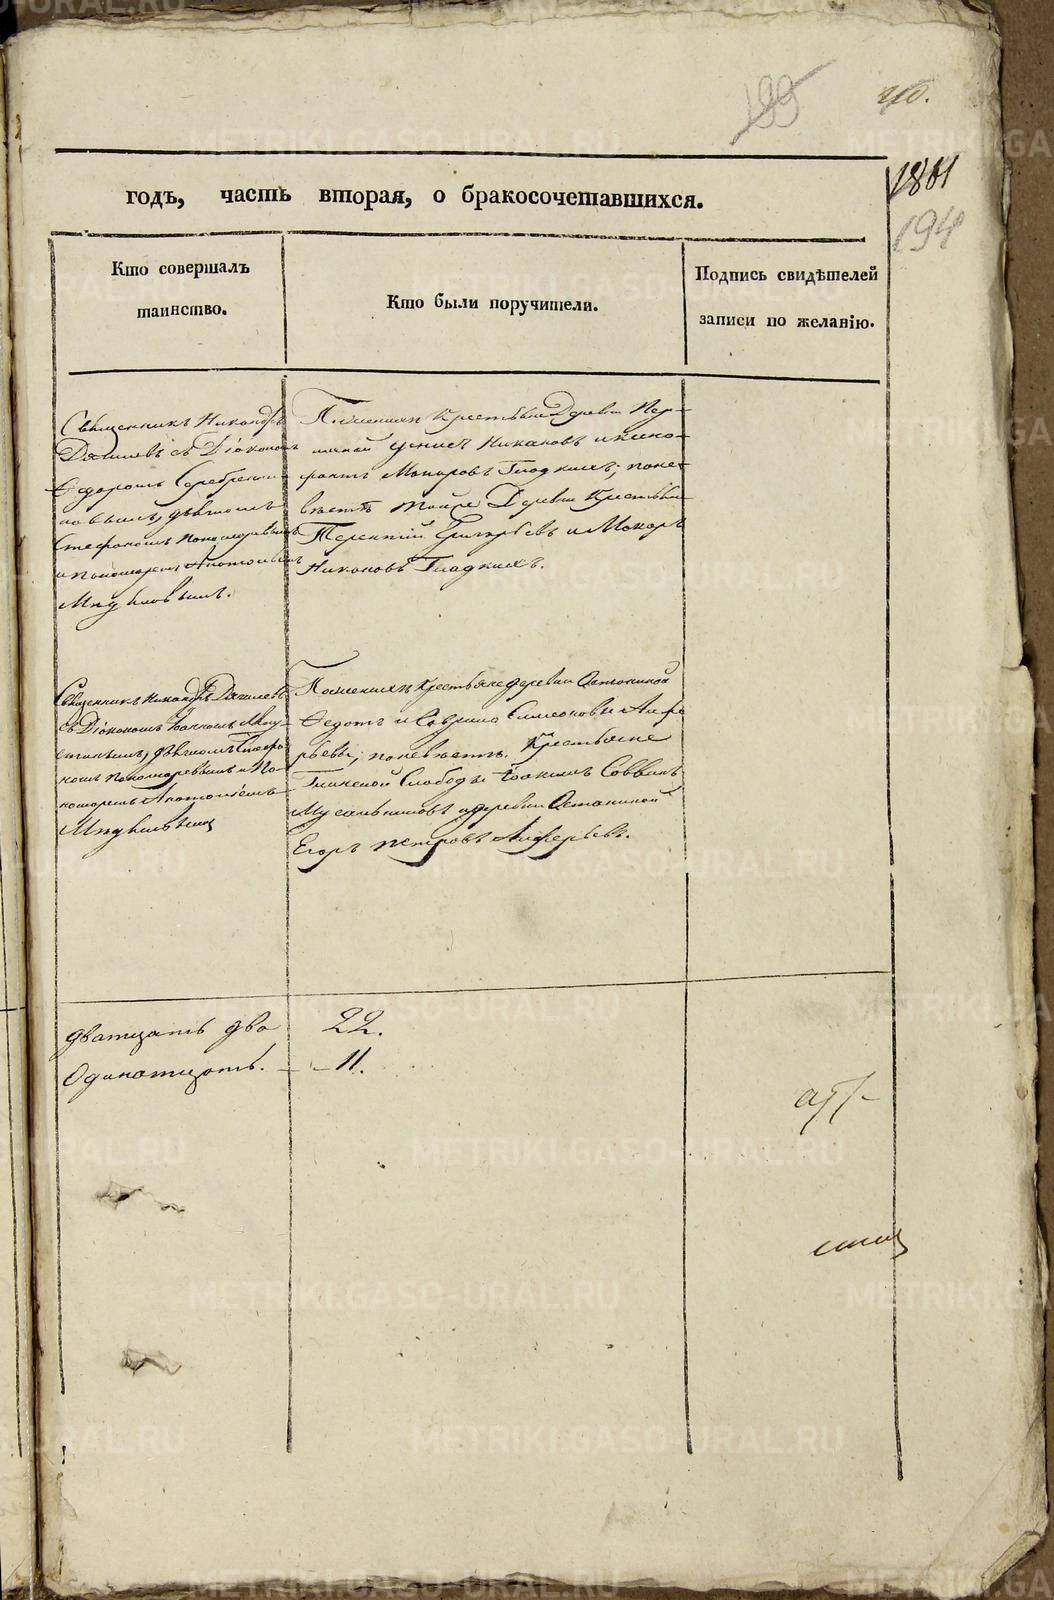 199
210.
1861
194
годъ, часть вторая, о бракосочетавшихся.
Кто совершалъ
таинство.
Кто были поручители.
Подпись свидѣтелей
записи по желанію.
Священникъ Никандръ
съ Діакономъ
Ѳедоромъ Серебрени-
ковымъ, дьячкомъ
Стефаномъ Пономаревымъ
и Пономаремъ
По женихѣ Крестьяне Деревни
Никоновъ и
Макаровъ Гладкихъ; по не-
вѣстѣ тойже Деревни Крестьяне
Терентій Григорьевъ и Макаръ
Никоновъ Гладкихъ.
Священникъ Никандръ
съ Діакономъ Іоанномъ
дьячкомъ Стефа-
номъ Пономаревымъ и По-
номаремъ
По женихѣ Крестьяне деревни Останиной
Ѳедотъ и Гаврило Симеоновы Алфе
рьевы; по невѣстѣ Крестьяне
Глинской Слободы Іоакимъ Саввинъ
Мусальниковъ и деревни Останиной
Егоръ Петровъ Алферьевъ.
дватцать два 22.
Одинатцать. - - 11.
METRIKI.GASO-URAL.RU